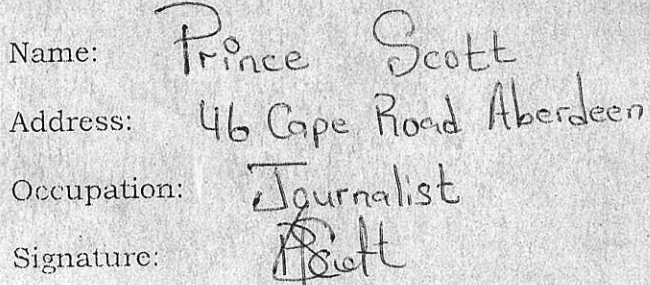 Name: Prince Scott
Address: 46 Cape Road Aberdeen
Occupation: Journalist
Signature: PScott